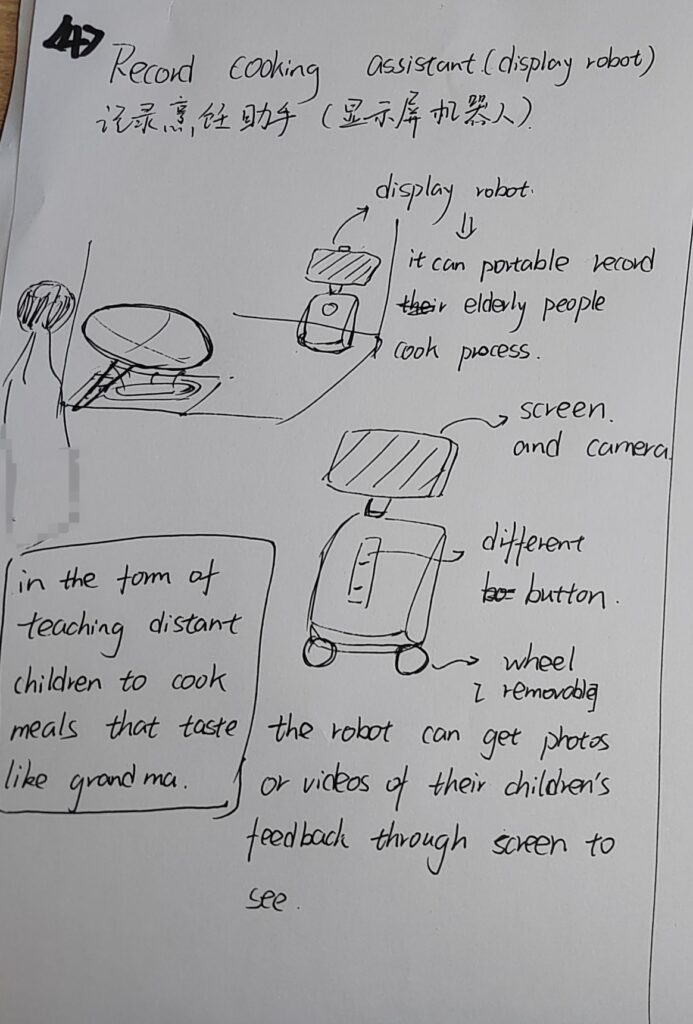 47
Record cooking assistant (display robot)
记录烹饪助手（显示屏机器人）.
display robot.
it can portable record
their elderly people
cook process.
screen.
and camera.
different
button.
wheel
removable
in the form of
teaching distant
children to cook
meals that taste
like grandma.
the robot can get photos
or videos of their children's
feedback through screen to
see.